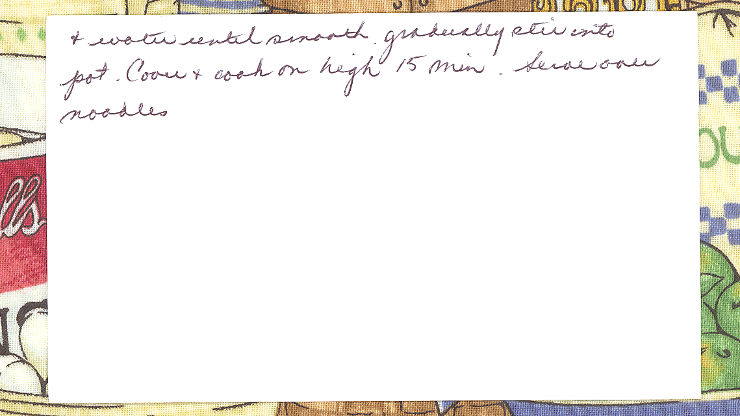 + water until smooth. gradually stir into
pot. Cover + cook on high 15 min. Serve over
noodles
lls
OU